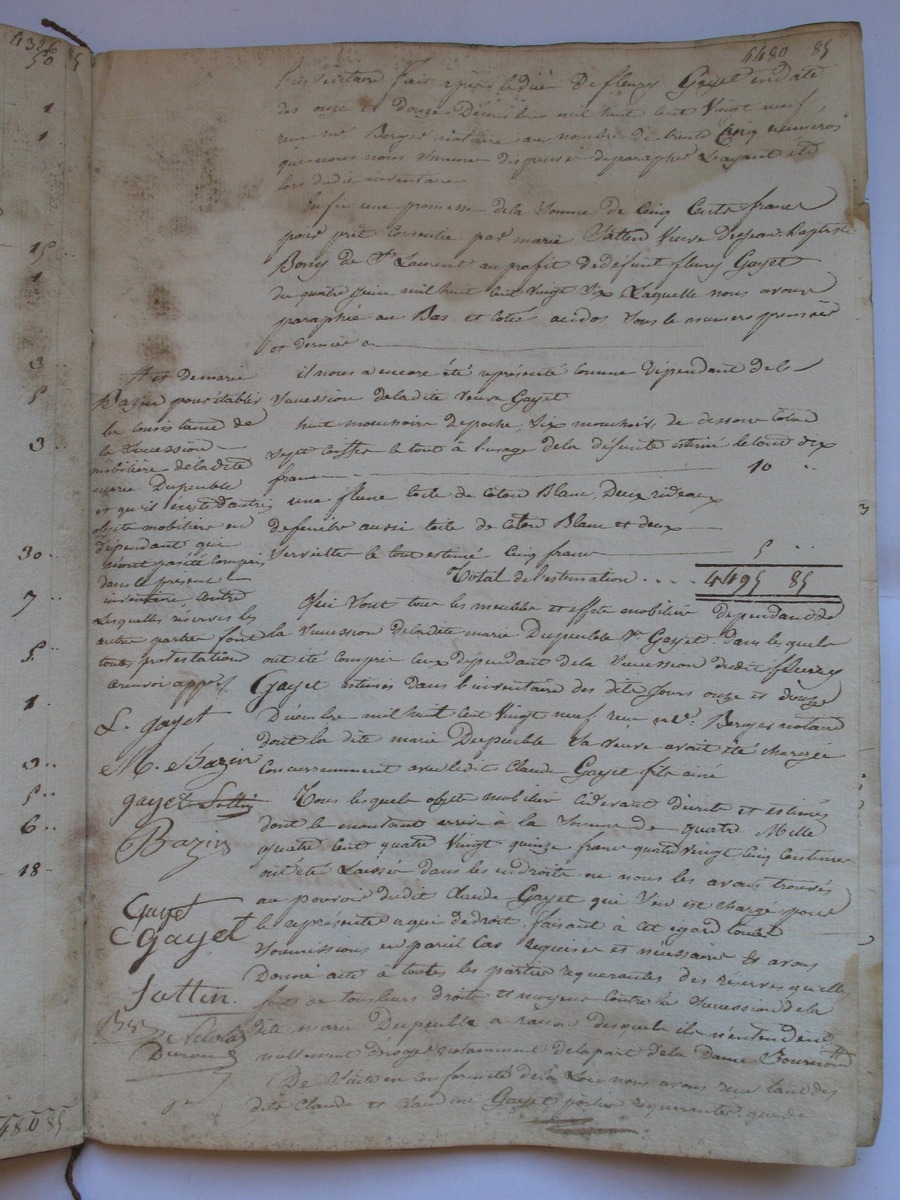 4480 85
fait après le décès de fleury Gayet en date
des onze et douze Décembre mil huit cent vingt neuf
reçu Me Berger notaire au nombre de trente Cinq numéros
que nous nous sommes dispensé de parapher L'ayant été
lors dudit inventaire
Enfin une promesse de la somme de Cinq Cents francs
pour prêt Consentie par marie Sattin Veuve de Jean-Baptiste
Bony de St Laurent au profit de défunt fleury Gayet
du quatre juin mil huit cent vingt six Laquelle nous avons
paraphée au Bas et cotée au dos sous le numéro premier
et dernier
il nous a encore été représenté comme dépendant de la
succession de la dite veuve Gayet
huit mouchoirs de poche, six mouchoirs de dessous coton
sept coiffes le tout à l'usage de la défunte estimé le tout dix
francs 10 "
une toile de Coton Blanc, Deux rideaux
de fenêtre aussi toile de Coton Blanc et deux
serviettes le tout estimé Cinq francs 5 "
Total de l'estimation . . . . 4495 85
Qui sont tous les meubles et effets mobiliers dépendant de
la succession de la dite marie Dupeuble Ve Gayet dans lesquels
ont été compris ceux dépendant de la succession dudit fleury
Gayet estimés dans l'inventaire des dits Jours onze et douze
Décembre mil huit cent vingt neuf reçu Me Berger notaire
dont la dite marie Dupeuble sa veuve avoit été chargée
Concurremment avec ledit Claude Gayet fils ainé
Tous lesquels objets mobiliers cidevant décrits et estimés
dont le montant arrive à la somme de quatre Mille
quatre cent quatre vingt quinze francs quatrevingt Cinq Centimes
ont été Laissés dans les endroits ou nous les avons trouvés
au pouvoir dudit Claude Gayet qui s'en est chargé pour
le représenter a qui de droit, faisant à cet égard toutes
soumissions en pareil Cas requises et nécessaires Et avons
Donné acte à toutes les parties requerantes des réserves qu'elles
font de tous leurs droits et moyens contre la succession de la
dite marie Dupeuble a raison desquels ils n'entendent
nullement déroger notamment de la part de la Dame
De Suite en conformité de la Loi nous avons reçu des
dits Claude et Gayet, parties requerantes, que de
et de marie
Bazin pour établir
la consistance de
la succession
mobilière de la dite
marie Dupeuble
et qu'il existe d'autres
objets mobiliers en
dépendant qui
n'ont pas été compris
dans le présent
inventaire contre
Lesquelles réserves les
autres parties font
toutes protestation
a renvoi app.
L. gayet
M. Bazin
gayet Sattin
Bazin
Gayet
C gayet
Sattin
4326 85
50
1
1
15 "
1
3
5
3
30 "
7
5
1
3 "
5 "
6 "
18 "
4480 85